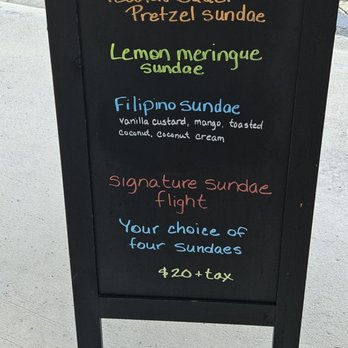 Pretzel sundae
Lemon meringue
sundae
Filipino sundae
vanilla custard, mango, toasted
coconut, coconut cream
signature sundae
flight
Your choice of
four sundaes
$20 + tax